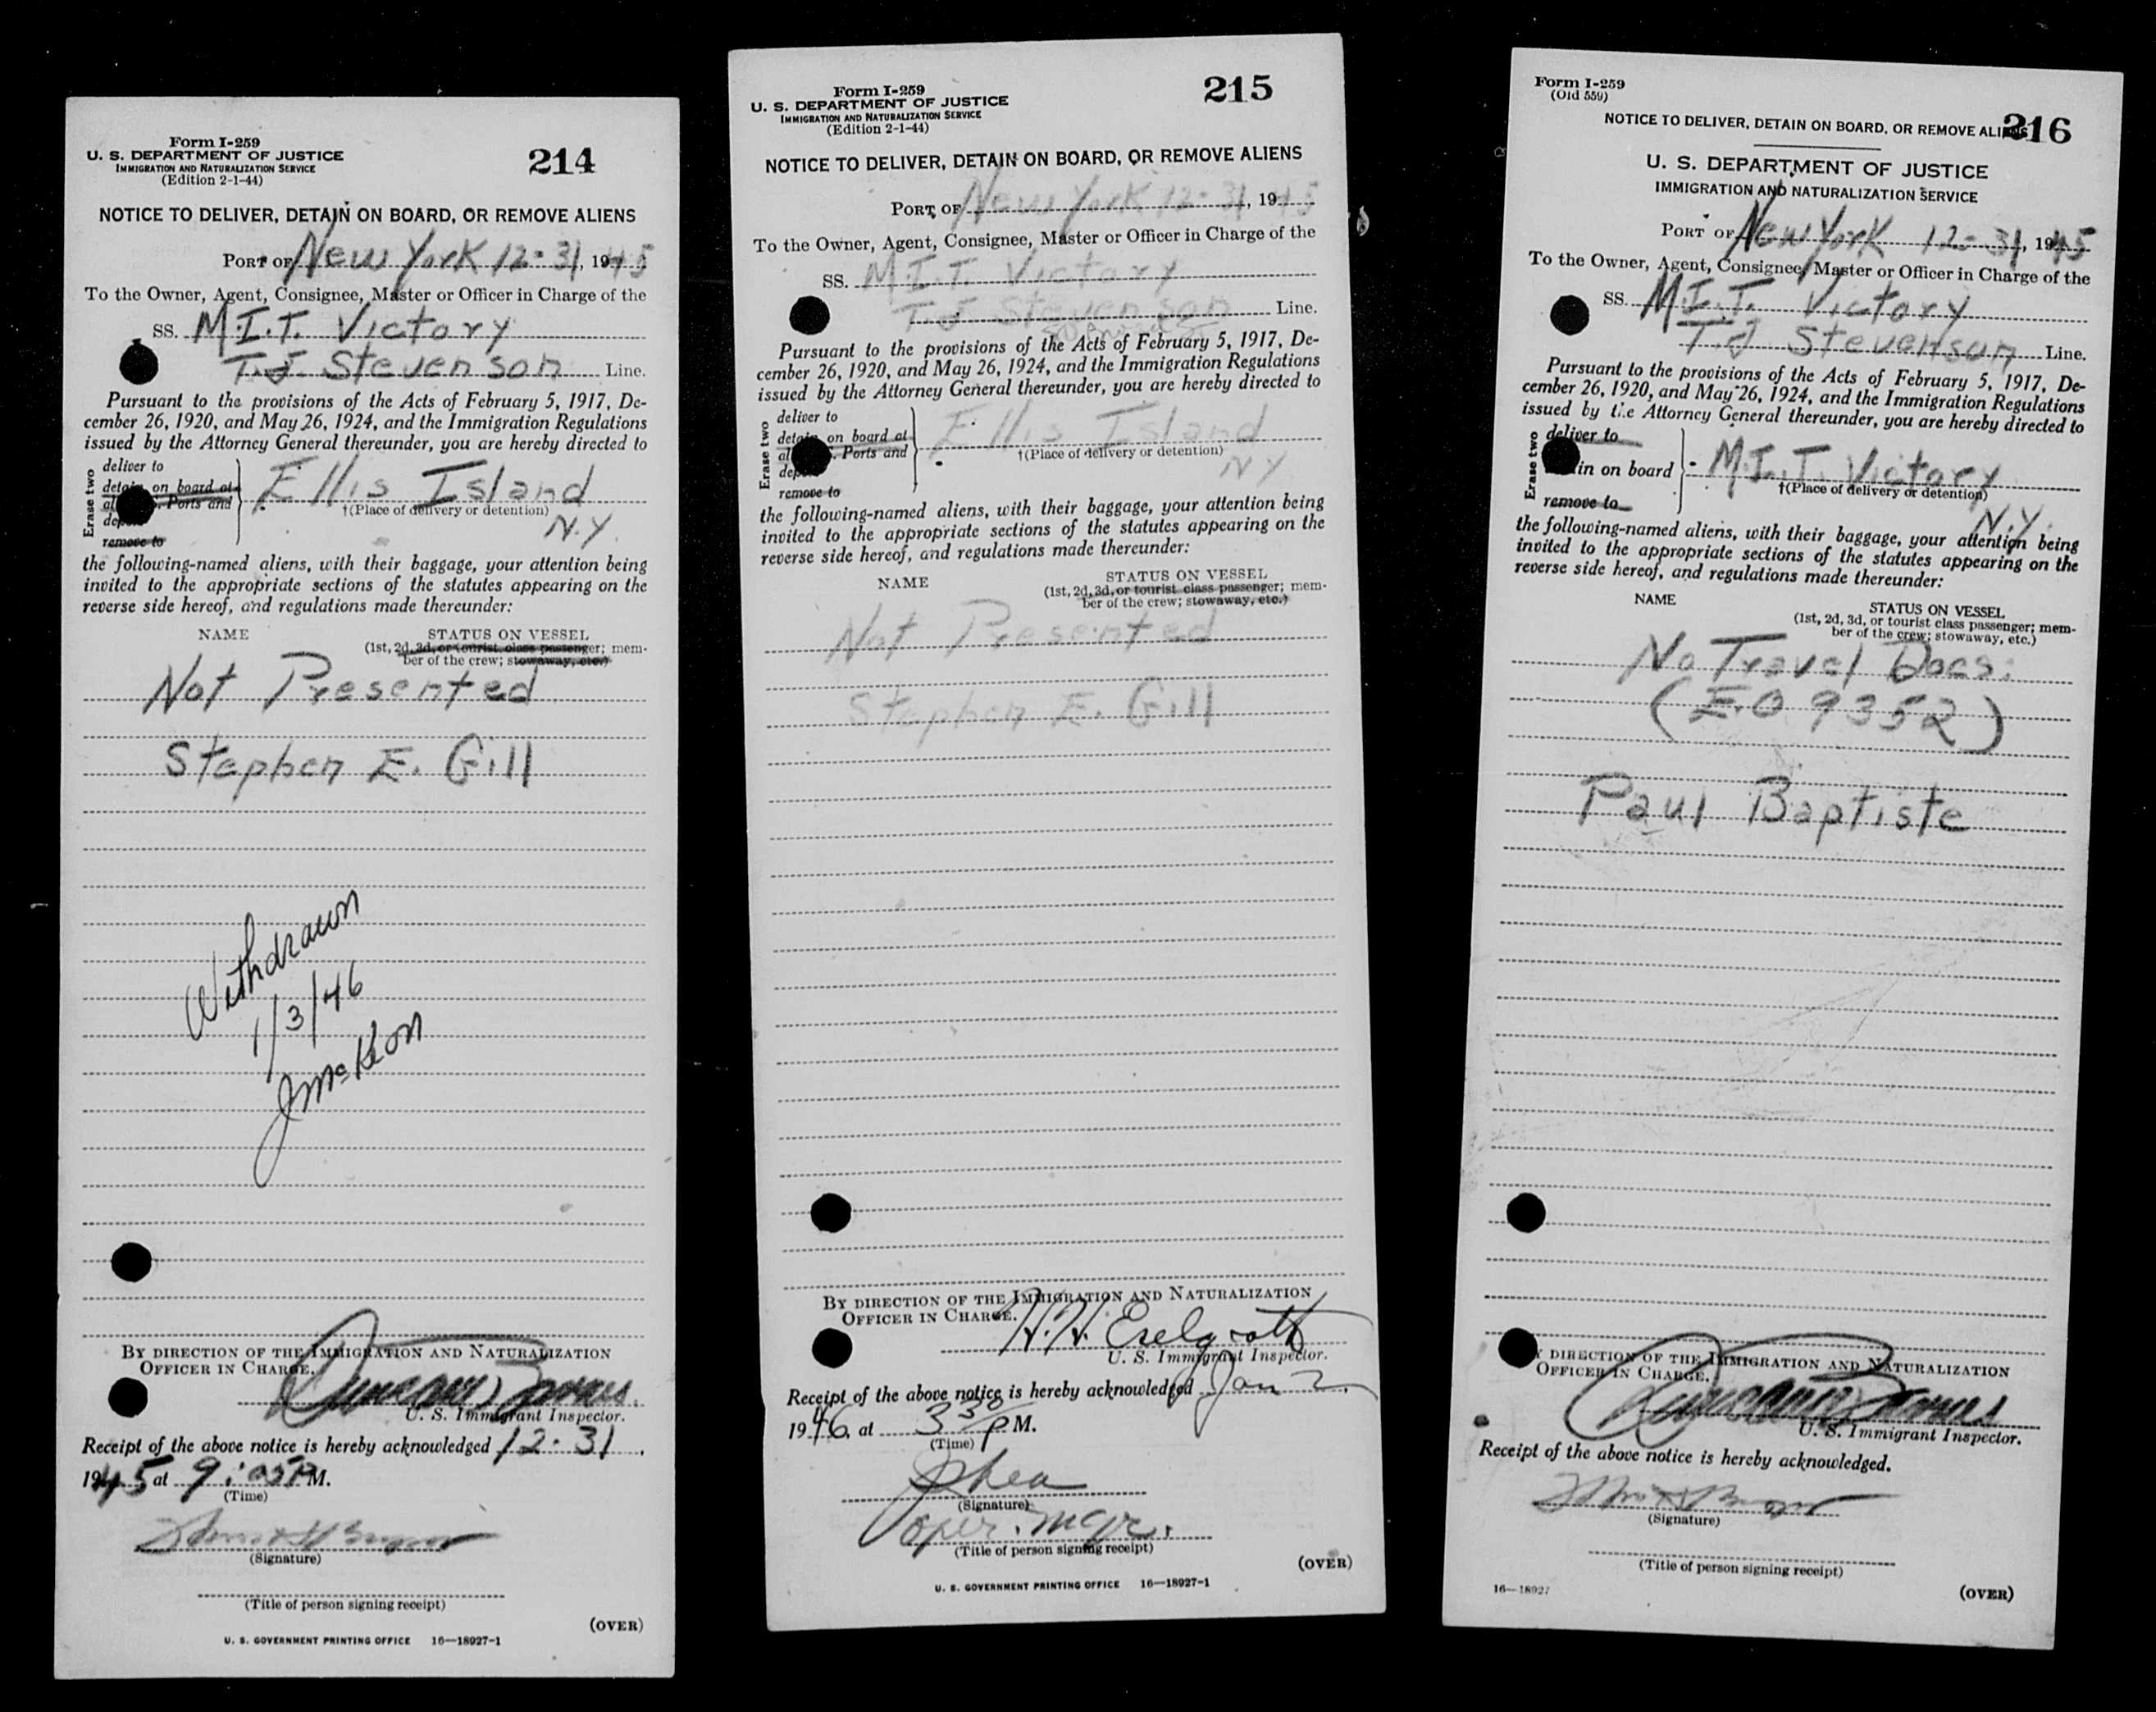 Form I-259
U. S. DEPARTMENT OF JUSTICE
IMMIGRATION AND NATURALIZATION SERVICE
(Edition 2-1-44)
214
NOTICE TO DELIVER, DETAIN ON BOARD, OR REMOVE ALIENS
PORT OF New York 12-31, 1945
To the Owner, Agent, Consignee, Master or Officer in Charge of the
SS. M.I.T. Victory
T.J Stevenson Line.
Pursuant to the provisions of the Acts of February 5, 1917, De-
cember 26, 1920, and May 26, 1924, and the Immigration Regulations
issued by the Attorney General thereunder, you are hereby directed to
Erase two
deliver to
detain on board at
Ports and
remove to
Ellis Island
†(Place of delivery or detention)
N.Y.
the following-named aliens, with their baggage, your attention being
invited to the appropriate sections of the statutes appearing on the
reverse side hereof, and regulations made thereunder:
NAME
STATUS ON VESSEL
(1st, 2d, 3d, or tourist class passenger; mem-
ber of the crew; stowaway, etc.)
Not Presented
Stephen E. Gill
Withdrawn
1/3/46
J McKeon
BY DIRECTION OF THE IMMIGRATION AND NATURALIZATION
OFFICER IN CHARGE.
U. S. Immigrant Inspector.
Receipt of the above notice is hereby acknowledged 12-31,
1945 at 9:05 P M.
(Time)
(Signature)
(Title of person signing receipt)
(OVER)
U. S. GOVERNMENT PRINTING OFFICE 16—18927-1
Form I-259
U. S. DEPARTMENT OF JUSTICE
IMMIGRATION AND NATURALIZATION SERVICE
(Edition 2-1-44)
215
NOTICE TO DELIVER, DETAIN ON BOARD, OR REMOVE ALIENS
PORT OF New York 12-31, 1945
To the Owner, Agent, Consignee, Master or Officer in Charge of the
SS. M.I.T. Victory
T.J Stevenson Line.
Pursuant to the provisions of the Acts of February 5, 1917, De-
cember 26, 1920, and May 26, 1924, and the Immigration Regulations
issued by the Attorney General thereunder, you are hereby directed to
Erase two
deliver to
detain on board at
Ports and
remove to
Ellis Island
†(Place of delivery or detention)
NY
the following-named aliens, with their baggage, your attention being
invited to the appropriate sections of the statutes appearing on the
reverse side hereof, and regulations made thereunder:
NAME
STATUS ON VESSEL
(1st, 2d, 3d, or tourist class passenger; mem-
ber of the crew; stowaway, etc.)
Not Presented
Stephen E. Gill
BY DIRECTION OF THE IMMIGRATION AND NATURALIZATION
OFFICER IN CHARGE.
H.H. Eselgroth
U. S. Immigrant Inspector.
Receipt of the above notice is hereby acknowledged Jan 2,
1946, at 3 30 P M.
(Time)
JShea
(Signature)
oper. mgr.
(Title of person signing receipt)
(OVER)
U. S. GOVERNMENT PRINTING OFFICE 16—18927-1
Form I-259
(Old 559)
NOTICE TO DELIVER, DETAIN ON BOARD, OR REMOVE ALIENS
216
U. S. DEPARTMENT OF JUSTICE
IMMIGRATION AND NATURALIZATION SERVICE
PORT OF New York 12-31, 1945
To the Owner, Agent, Consignee, Master or Officer in Charge of the
SS. M.I.T. Victory
T.J Stevenson Line.
Pursuant to the provisions of the Acts of February 5, 1917, De-
cember 26, 1920, and May 26, 1924, and the Immigration Regulations
issued by the Attorney General thereunder, you are hereby directed to
Erase two
deliver to
detain on board
remove to
M.I.T. Victory
†(Place of delivery or detention)
N.Y.
the following-named aliens, with their baggage, your attention being
invited to the appropriate sections of the statutes appearing on the
reverse side hereof, and regulations made thereunder:
NAME
STATUS ON VESSEL
(1st, 2d, 3d, or tourist class passenger; mem-
ber of the crew; stowaway, etc.)
No Travel Docs.
(E.O 9352)
Paul Baptiste
BY DIRECTION OF THE IMMIGRATION AND NATURALIZATION
OFFICER IN CHARGE.
U. S. Immigrant Inspector.
Receipt of the above notice is hereby acknowledged.
(Signature)
(Title of person signing receipt)
16—18927
(OVER)